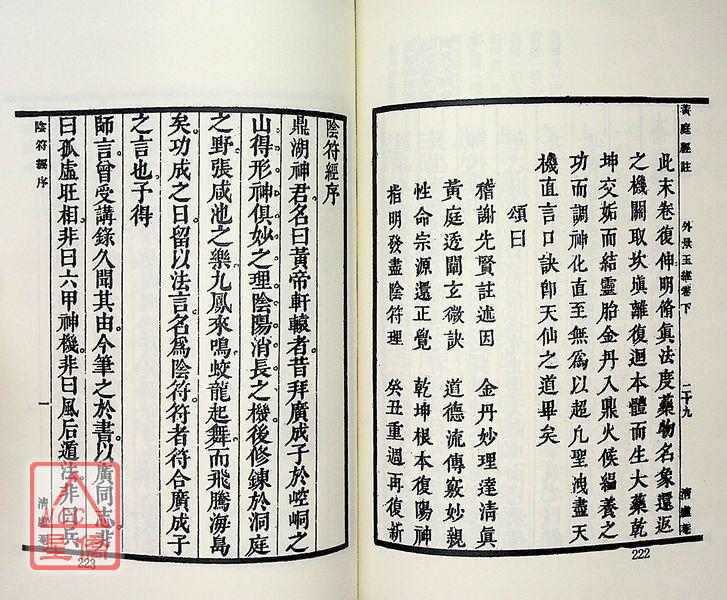 黃庭經註 外景玉經卷下 二十九 清虛菴
此末卷復伸明脩眞法度藥物名象還返
之機關取坎塡離復迴本體而生大藥乾
坤交姤而結靈胎金丹入鼎火候縕養之
功而調神化直至無爲以超凡聖洩盡天
機直言口訣卽天仙之道畢矣
頌曰
稽謝先賢註述因 金丹妙理達清眞
黃庭透闢玄微訣 道德流傳竅妙親
性命宗源還正覺 乾坤根本復陽神
指明發盡陰符理 癸丑重週再復新
222
陰符經序
鼎湖神君名曰黃帝軒轅者昔拜廣成子於崆峒之
山得形神俱妙之理陰陽消長之機後修鍊於洞庭
之野張咸池之樂九鳳來鳴蛟龍起舞而飛騰海島
矣功成之日留以法言名爲陰符符者符合廣成子
之言也予得
師言曾受講錄久聞其由今筆之於書以廣同志非
曰孤虛旺相非曰六甲神機非曰風后遁法非曰兵
陰符經序 一 清虛菴
223